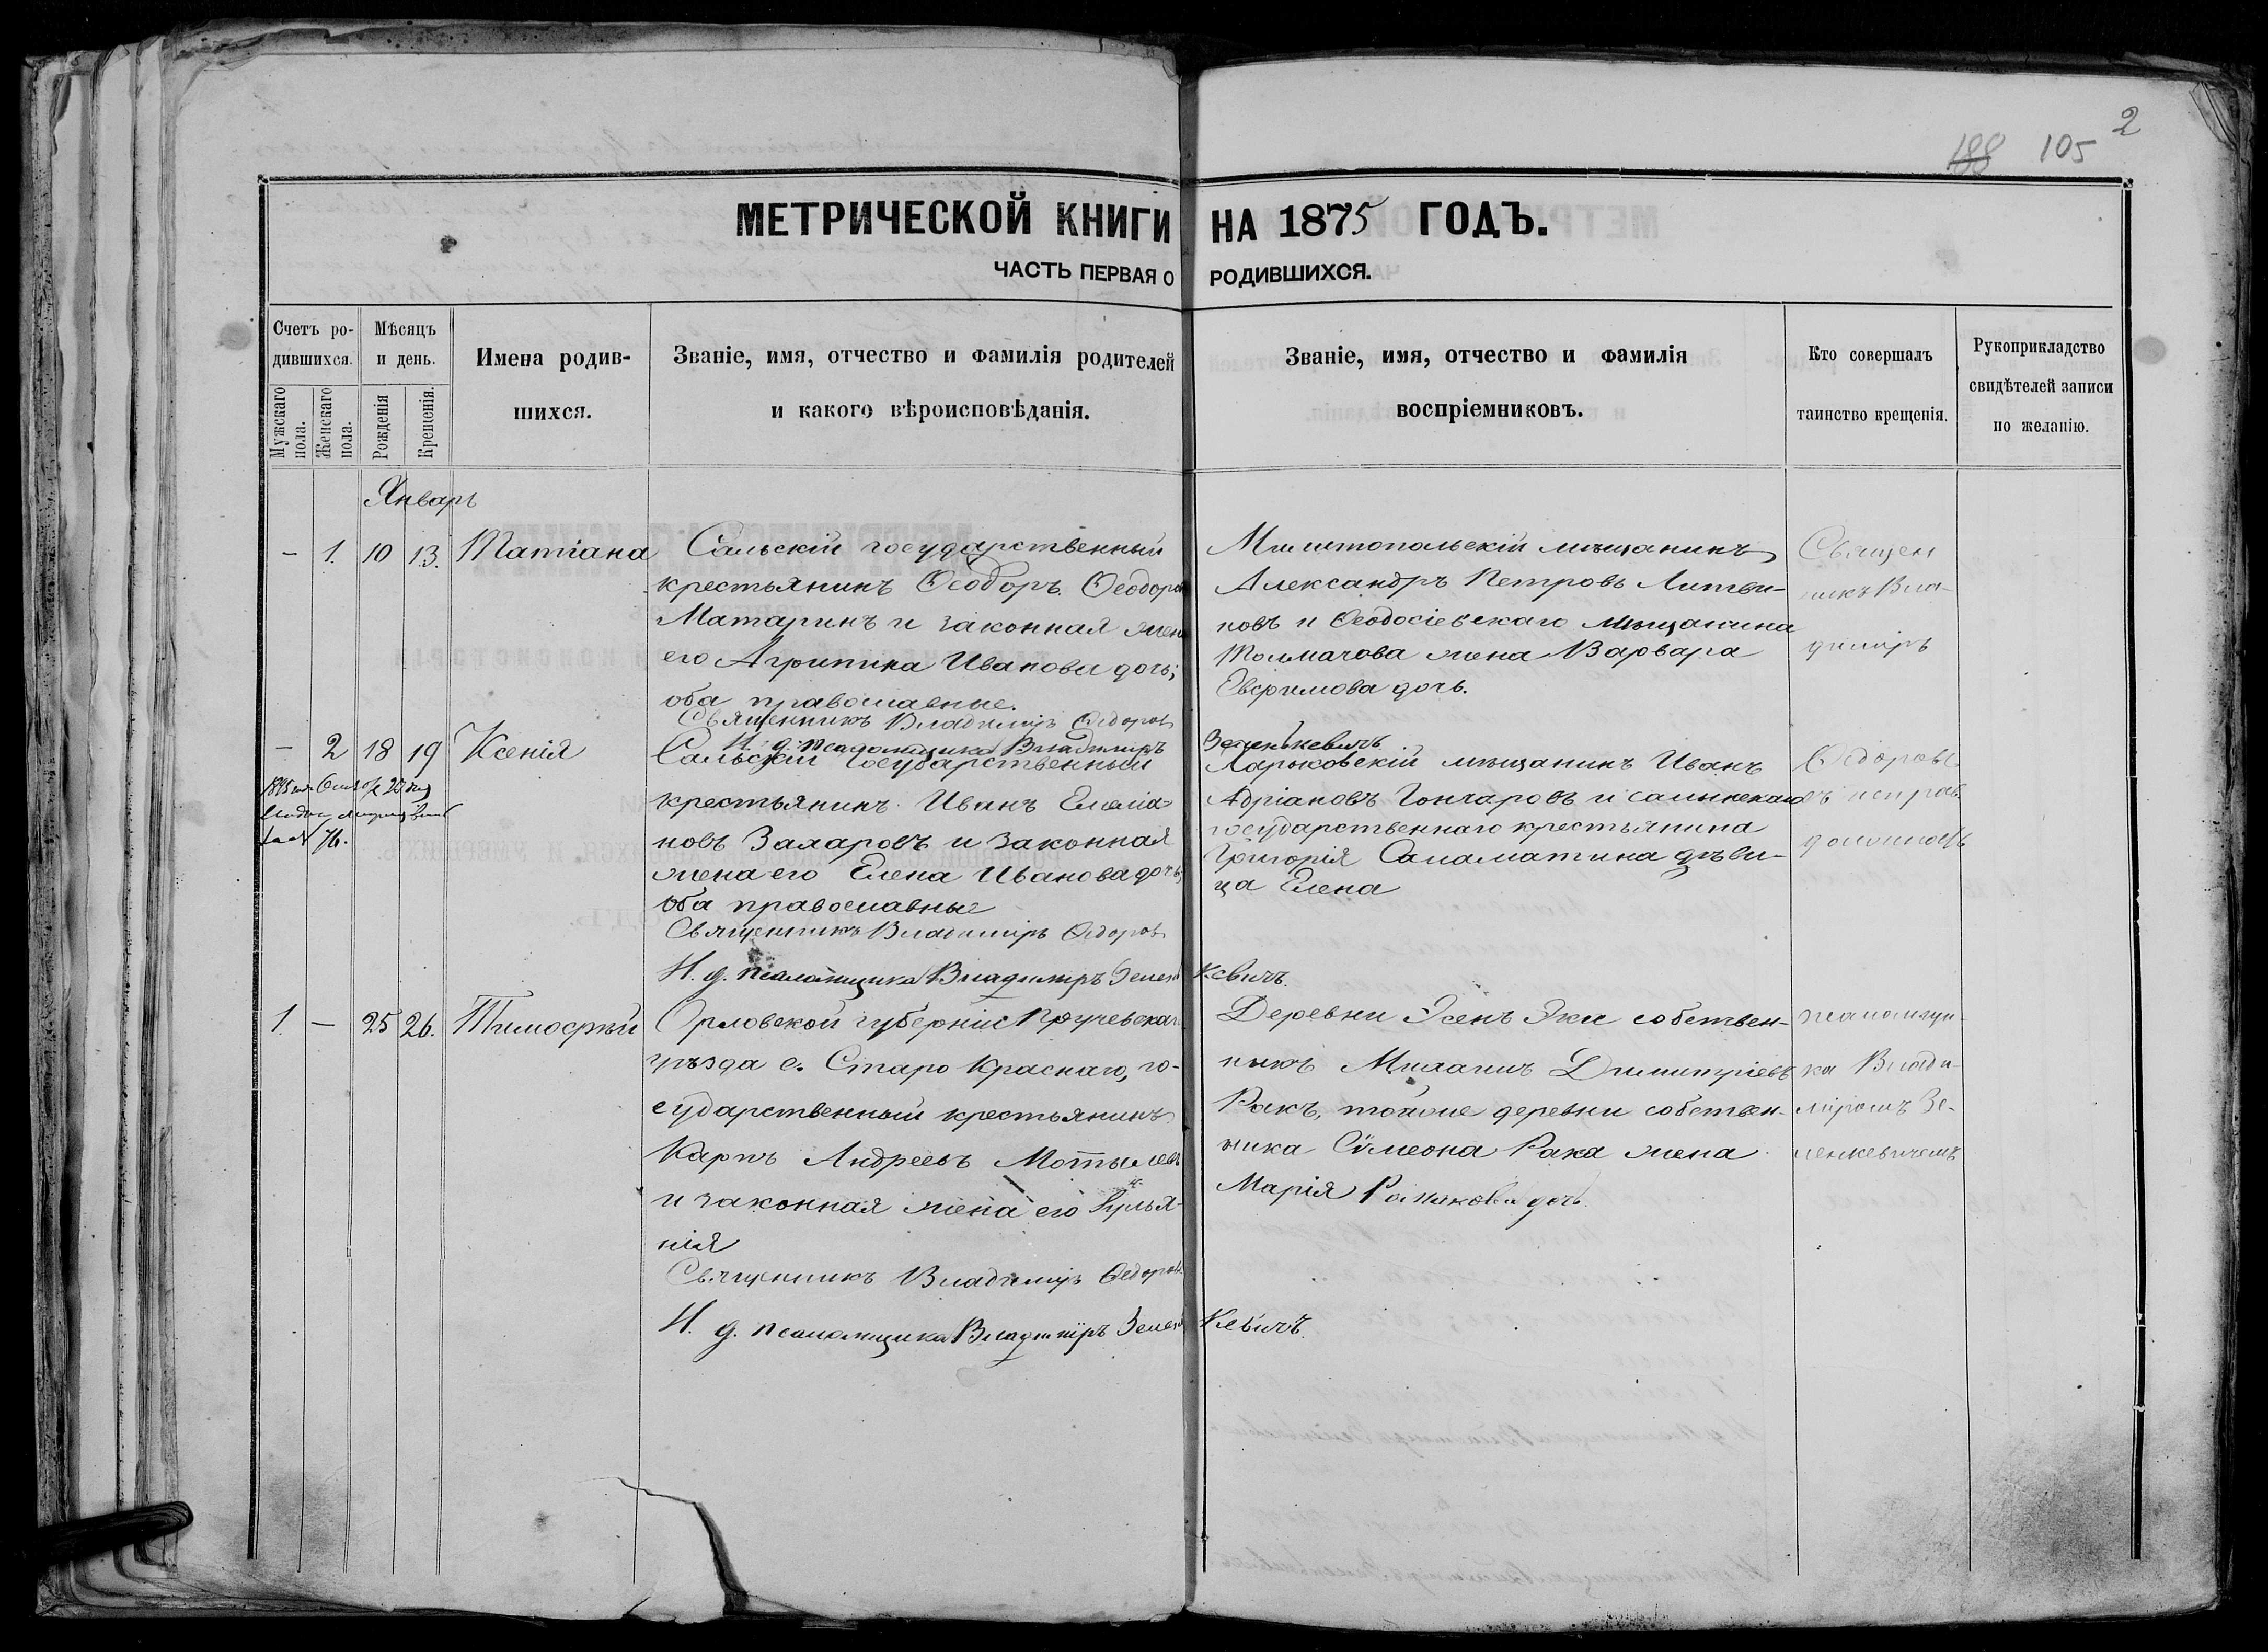 2
188 105
МЕТРИЧЕСКОЙ КНИГИ НА 1875 ГОДЪ.
ЧАСТЬ ПЕРВАЯ О РОДИВШИХСЯ.
Счетъ ро-
дившихся.
Мужскаго пола.
Женскаго пола.
Мѣсяцъ
и день.
Рожденія
Крещенія.
Имена родив-
шихся.
Званіе, имя, отчество и фамилія родителей
и какого вѣроисповѣданія.
Званіе, имя, отчество и фамилія
воспріемниковъ.
Кто совершалъ
таинство крещенія.
Рукоприкладство
свидѣтелей записи
по желанію.
Январь
– 1. 10 13. Татіана
Сальскій государственный
крестьянинъ Ѳеодоръ Ѳеодоро
Матаринъ и законная жен
его Агрипина Иванова дочь;
оба православные.
Священникъ Владиміръ Ѳедоров
И. д. псаломщика Владиміръ Зеленькевичъ
Мелитопольскій мѣщанинъ
Александръ Петровъ Литви-
новъ и Ѳеодосіевскаго мѣщанина
Толмачова жена Варвара
Евфимова дочь.
Священ
никъ Вла-
диміръ
– 2 18 19 Ксенія
Сальскій государственный
крестьянинъ Иванъ Емелiа-
новъ Захаровъ и законная
жена его Елена Иванова дочь,
оба православные
Священникъ Владиміръ Ѳедоров
И. д. псаломщика Владимиръ Зелень кевичъ.
Харьковскій мѣщанинъ Иванъ
Адріановъ Гончаровъ и
государственнаго крестьянина
Григорія Саламатина дѣви-
ца Елена
Ѳедоровъ
съ исправ.
должность
76.
1. – 25 26. Тимофѣй
Орловской губерніи
уѣзда с. Старо Краснаго, го-
сударственный крестьянинъ
Карпъ Андреевъ Мотылевъ
и законная жена его Улья-
нія
Священникъ Владиміръ Ѳедоров
И. д. псаломщика Владиміръ Зелень кевичъ.
Деревни Эсенъ Эки собствен-
никъ Димитріевъ
Ракъ, тойже деревни собствен-
ника Сѵмеона Рака жена
Марія дочь.
псаломщи-
ка Влади-
міромъ Зе-
ленкевичемъ